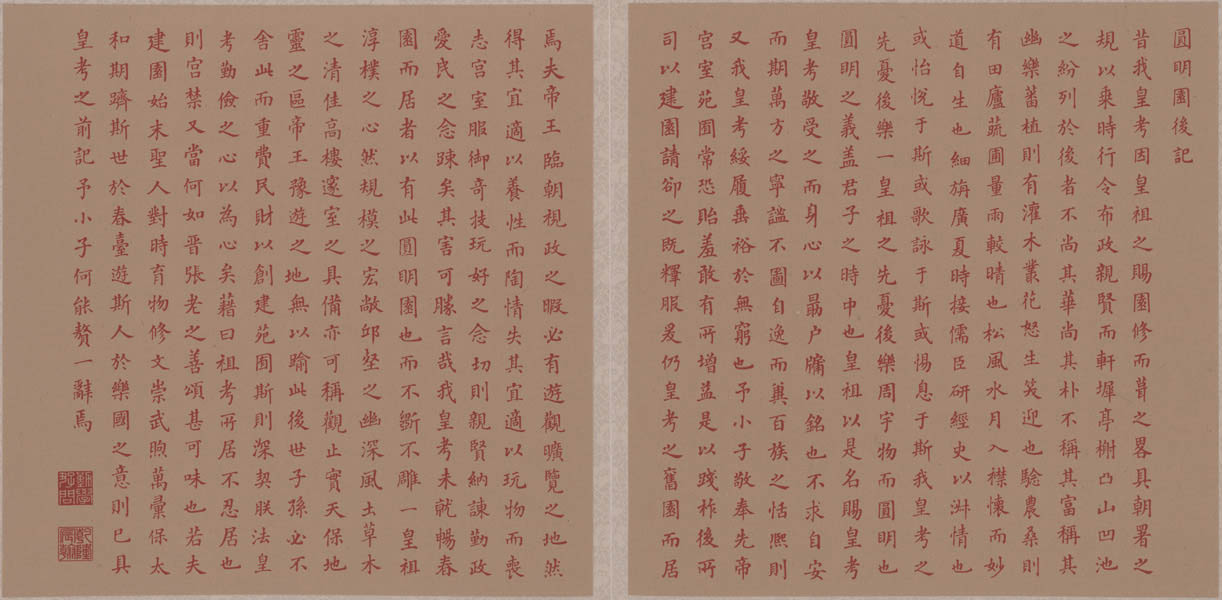 圓明園後記
昔我皇考因皇祖之賜園修而葺之畧具朝署之
規以乘時行令布政親賢而軒墀亭榭凸山凹池
之紛列於後者不尚其華尚其朴不稱其富稱其
幽樂蕃植則有灌木叢花怒生笑迎也驗農桑則
有田廬蔬圃量雨較晴也松風水月入襟懷而妙
道自生也細旃廣夏時接儒臣研經史以淑情也
或怡悅于斯或歌詠于斯或惕息于斯我皇考之
先憂後樂一皇祖之先憂後樂周宇物而圓明也
圓明之義盖君子之時中也皇祖以是名賜皇考
皇考敬受之而身心以勗户牖以銘也不求自安
而期萬方之寧謐不圖自逸而冀百族之恬熈則
又我皇考綏履垂裕於無窮也予小子敬奉先帝
宫室苑囿常恐貽羞敢有所增益是以踐祚後所
司以建園請卻之既釋服爰仍皇考之舊園而居
焉夫帝王臨朝視政之暇必有遊觀曠覽之地然
得其宜適以養性而陶情失其宜適以玩物而喪
志宫室服御奇技玩好之念切則親賢納諫勤政
愛民之念踈矣其害可勝言哉我皇考未就暢春
園而居者以有此圓明園也而不斵不雕一皇祖
淳樸之心然規模之宏敞邱壑之幽深風土草木
之清佳高樓邃室之具備亦可稱觀止實天保地
靈之區帝王豫遊之地無以踰此後世子孫必不
舍此而重費民財以創建苑囿斯則深契朕法皇
考勤儉之心以為心矣藉曰祖考所居不忍居也
則宫禁又當何如晋張老之善頌甚可味也若夫
建園始末聖人對時育物修文崇武煦萬彙保太
和期躋斯世於春臺遊斯人於樂國之意則已具
皇考之前記予小子何能贅一辭焉
乾隆